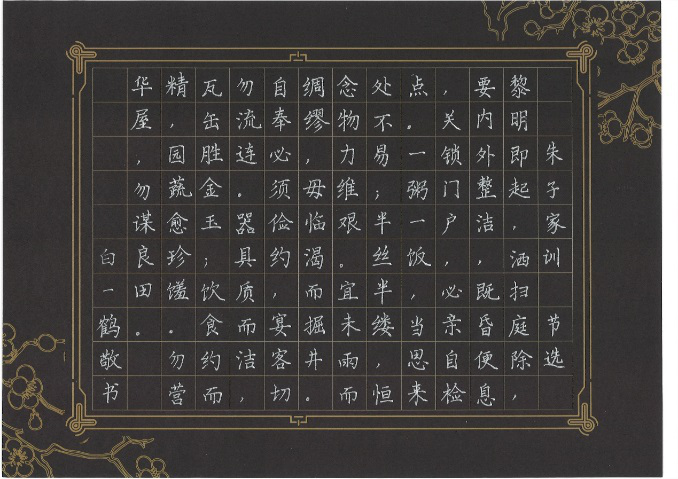 朱子家训 节选
黎明即起，洒扫庭除，
要内外整洁，既昏便息
，关锁门户，必亲自检
点。一粥一饭，当思来
处不易；半丝半缕，恒
念物力维艰。宜未雨而
绸缪，毋临渴而掘井。
自奉必须俭约，宴客切
勿流连。器具质而洁，
瓦缶胜金玉；饮食约而
精，园蔬愈珍馐。勿营
华屋，勿谋良田。
白一鹤敬书